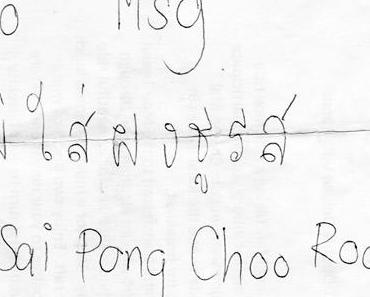 Msg
ใส่ผงชูรส
Sai Pong Choo